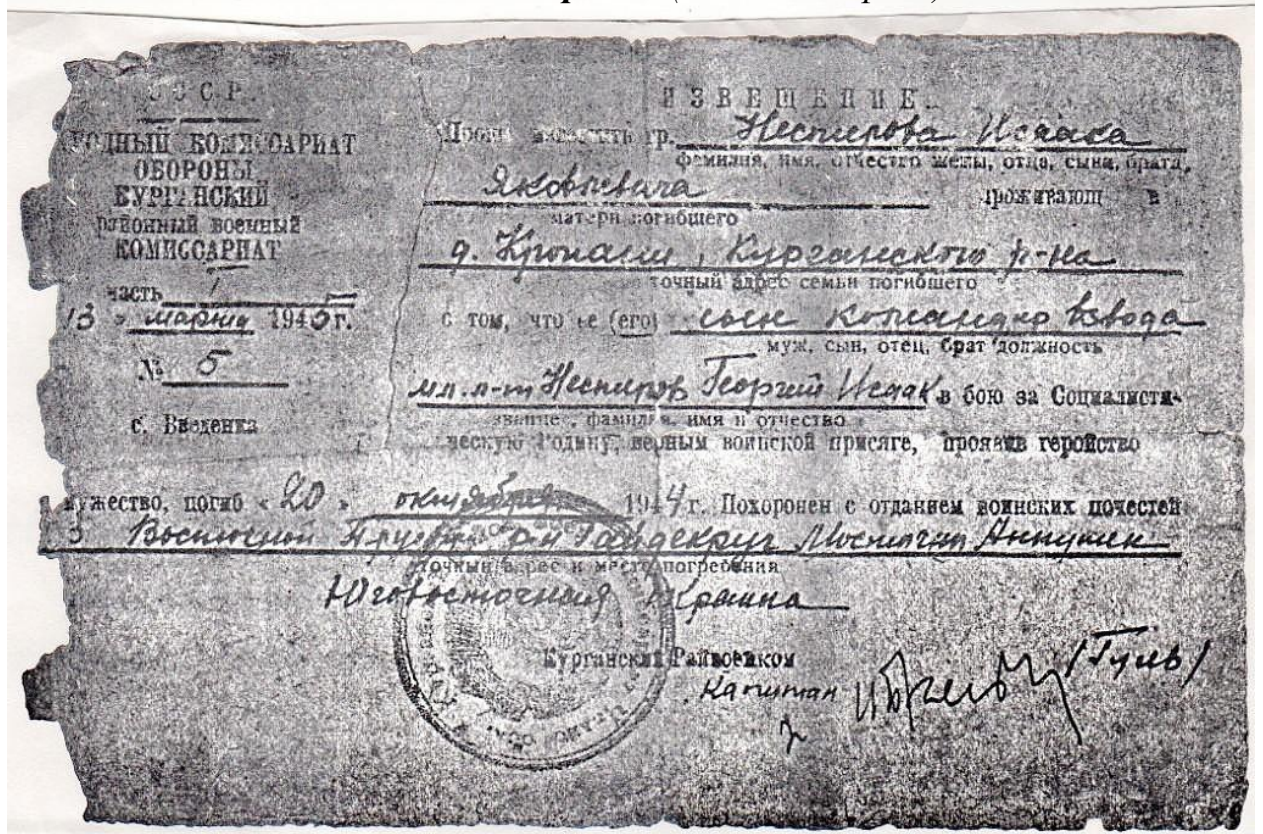 С С С Р.
РОДНЫЙ КОМИССАРИАТ
ОБОРОНЫ
КУРГАНСКИЙ
районный военный
КОМИССАРИАТ
часть 1
13 » марта 1945г.
№ 5
с. Введенка
ИЗВЕЩЕНИЕ.
Прошу известить гр. Неспирова Исаака
фамилия, имя, отчество жены, отца, сына, брата,
Яковлевича проживающ в
матери погибшего
д. Кропани, Курганского р-на
точный адрес семьи погибшего
с том, что ее (его) сын командир взвода
муж, сын, отец, брат должность
мл. л-т Неспиров Георгий Исаак в бою за Социалисти-
звание, фамилия, имя и отчество
ческую Родину, верным воинской присяге, проявив геройство
мужество, погиб « 20 » октября 1944 г. Похоронен с отданием воинских почестей
Восточной р-н Гайдекруг
точный адрес и место погребения
Юговосточная Краина
Курганский Райвоенком
Капитан /Гуль/